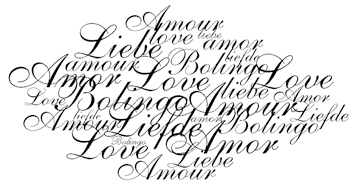 Amour
Liebe love liebe amor
amour Bolingo liefde
Amor Love liebe Love
Love Bolingo Amour Amor
Amour liefde Liefde amor Bolingo Liefde
Love Bolingo Liebe
Amor